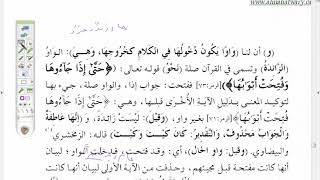 (و) أن لنا (وَاوًا يَكُونُ دُخُولُهَا فِي الكَلَامِ كَخُرُوجِهَا، وَهِيَ): الوَاوُ
(الزَّائِدَةُ) وتسمى في القرآن صلة (نَحْوُ) قوله تعالى: ﴿حَتَّىٰ إِذَا جَاءُوهَا
وَفُتِحَتْ أَبْوَابُهَا﴾ [الزمر: ٧٣] ففتحت: جواب إذا، والواو صلة، جيء بها
لتوكيد المعنى بدليل الآية الأخرى قبلها، وهي: ﴿حَتَّىٰ إِذَا جَاءُوهَا فُتِحَتْ أَبْوَابُهَا﴾
[الزمر: ٧١] بغير واو، (وَقِيلَ): لَيْسَتْ زَائِدَةً، وَ(إِنَّهَا عَاطِفَةٌ
وَالْجَوَابُ مَحْذُوفٌ، وَالتَّقْدِيرُ: كَانَ كَيْتَ وَكَيْتَ)، قاله: الزمخشري
والبيضاوي. (وقيل: واو الحال)، أي:
فتحت، فدخلت الواو لبيان
أنها كانت مفتحة قبل مجيئهم، وحذفت من الآية الأولى لبيان أنها كانت